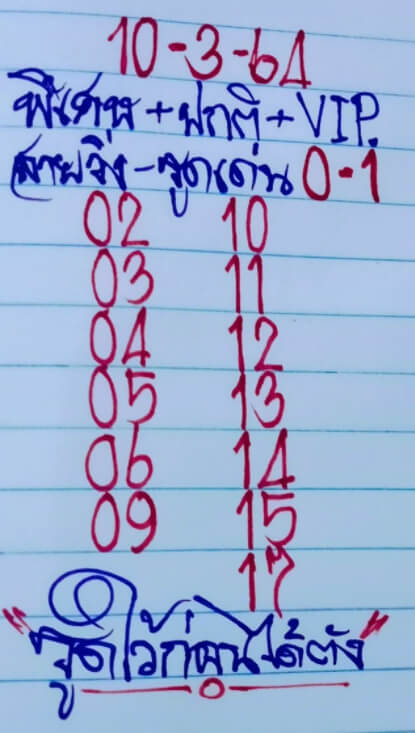 10-3-64
พิเศษ+ปกติ+VIP.
สายวิ่ง-รูดเด่น 0-1
02 10
03 11
04 12
05 13
06 14
09 15
17
"รูดไว้ก่อนได้ตัง"